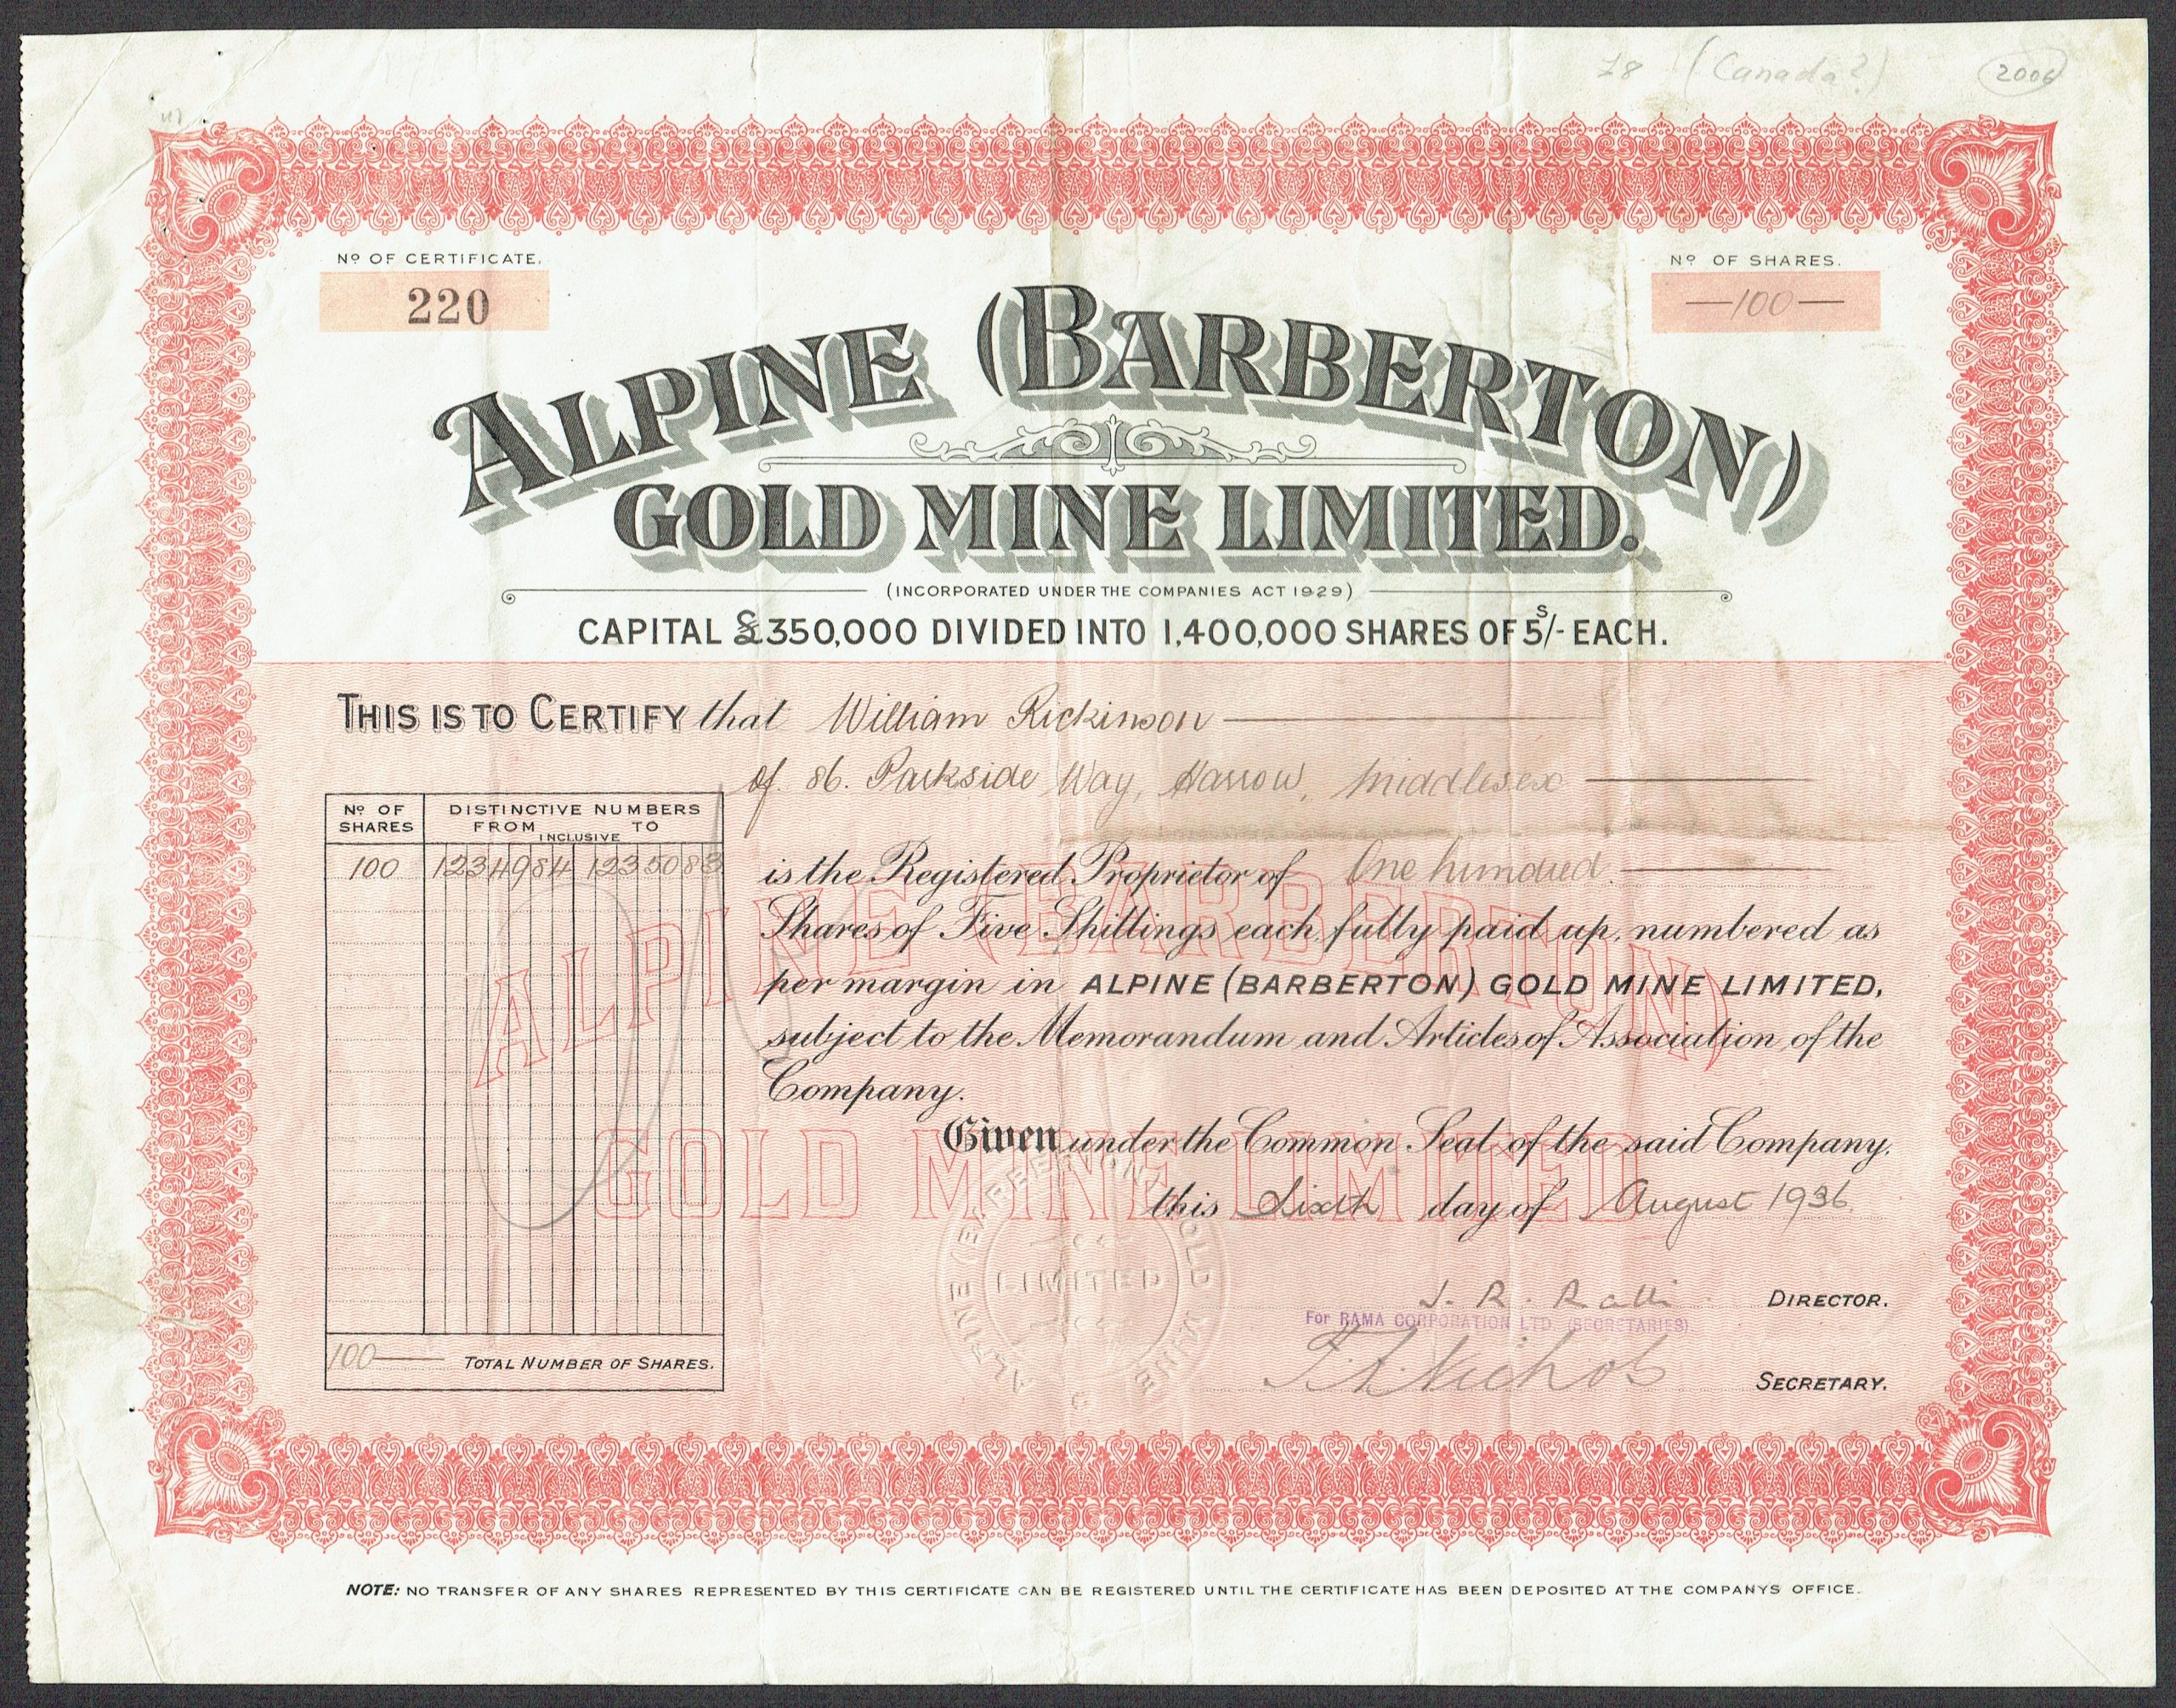 78 (Canada?) 2006
Nº OF CERTIFICATE.
220
Nº OF SHARES.
—100—
ALPINE (BARBERTON)
GOLD MINE LIMITED.
(INCORPORATED UNDER THE COMPANIES ACT 1929)
CAPITAL £350,000 DIVIDED INTO 1,400,000 SHARES OF 5S/- EACH.
THIS IS TO CERTIFY that William Rickinson
of 86. Parkside Way, Harrow, Middlesex
Nº OF SHARES DISTINCTIVE NUMBERS FROM INCLUSIVE TO
100 1234984 1235083
is the Registered Proprietor of One hundred.
Shares of Five Shillings each, fully paid up, numbered as
per margin in ALPINE (BARBERTON) GOLD MINE LIMITED,
subject to the Memorandum and Articles of Association of the
Company.
Given under the Common Seal of the said Company,
this Sixth day of August 1936.
ALPINE (BARBERTON)
GOLD MINE LIMITED
ALPINE (BARBERTON) GOLD MINE
LIMITED
J. R. Ralli DIRECTOR.
For RAMA CORPORATION LTD. (SECRETARIES).
Nichols SECRETARY.
100 TOTAL NUMBER OF SHARES.
NOTE: NO TRANSFER OF ANY SHARES REPRESENTED BY THIS CERTIFICATE CAN BE REGISTERED UNTIL THE CERTIFICATE HAS BEEN DEPOSITED AT THE COMPANYS OFFICE.